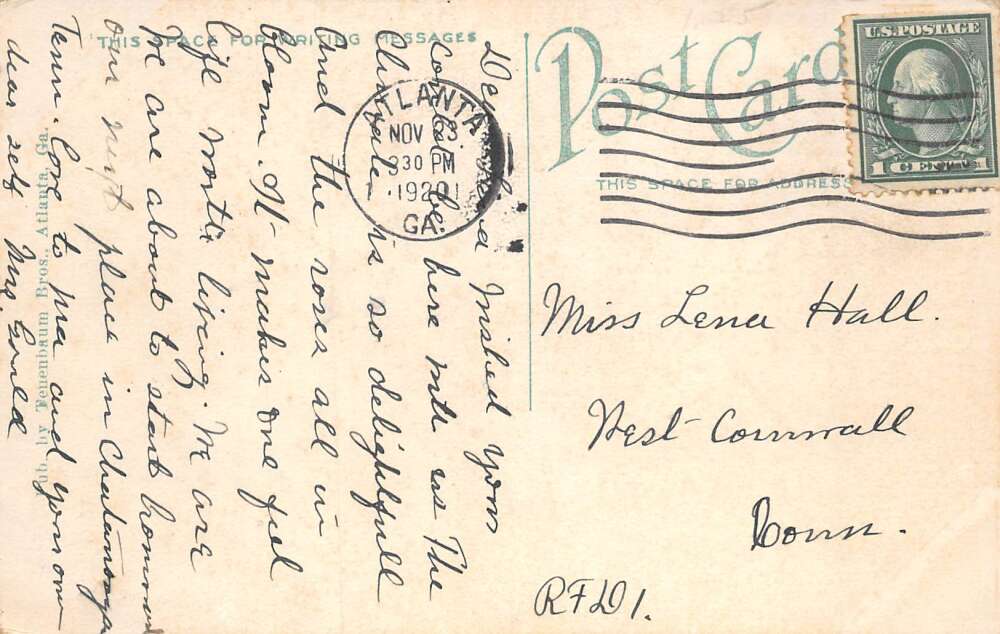 THIS SPACE FOR WRITING MESSAGES
Post Card
THIS SPACE FOR ADDRESS
U.S. POSTAGE
1 CENT 1
ATLANTA
NOV 23
330 PM
1920
GA.
Dear Lena Wished you
could be here with us The
Climate is so delightfull
And the roses all in
bloom. It makes one feel
life worth living. We are
We are about to start
our next place in Chatanooga
Tenn. Love to ma and your own
dear self Mrs. Gould
Pub. by Tenenbaum Bros., Atlanta, Ga.
Miss Lena Hall.
West Cornwall
Conn.
RFD 1.